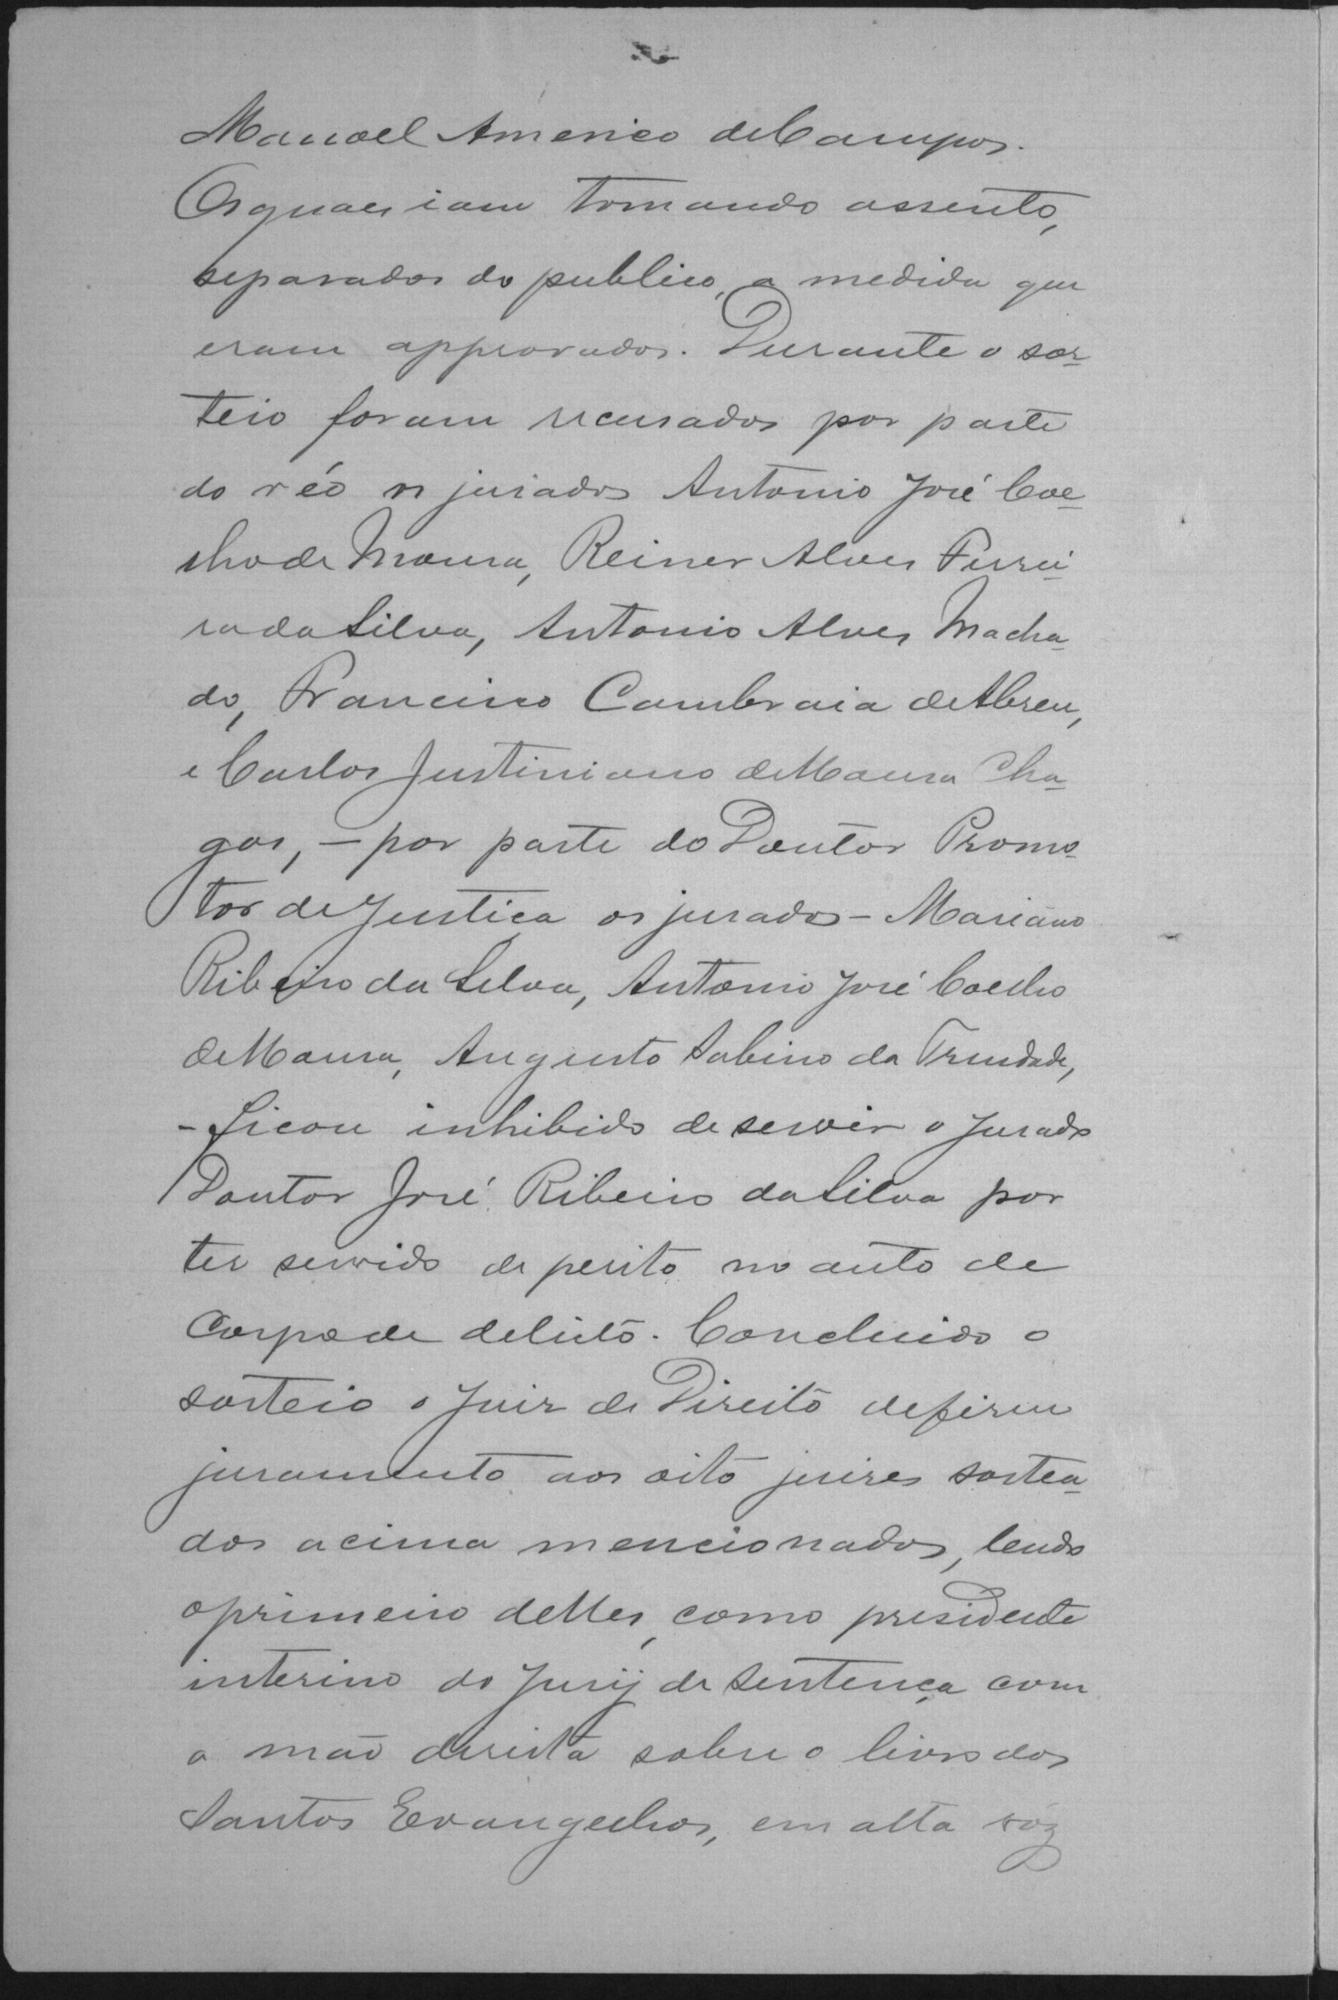 Manoel Americo de Campos.
Os quaes iam tomando assento,
separados do publico, a medida que
eram approvados. Durante o sor-
teio foram recusados por parte
do réo os jurados Antonio José Coe-
lho de Moura, Reiner Alves Ferrei-
ra da Silva, Antonio Alves Macha-
do, Francisco Cambraia de Abreu,
e Carlos Justiniano de Moura Cha-
gas, - por parte do Doutor Promo-
tor de Justiça os jurados - Mariano
Ribeiro da Silva, Antonio José Coelho
de Moura, Augusto Sabino da Trindade,
- ficou inhibido de servir o Jurado
Doutor José Ribeiro da Silva por
ter servido de perito no auto de
corpo de delicto. Concluido o
sorteio o Juiz de Direito deferiu
juramento aos oito juizes sortea-
dos acima mencionados, lendo
o primeiro delles, como presidente
interino do Jury de Sentença com
a mão direita sobre o livro dos
Santos Evangelhos, em alta vóz